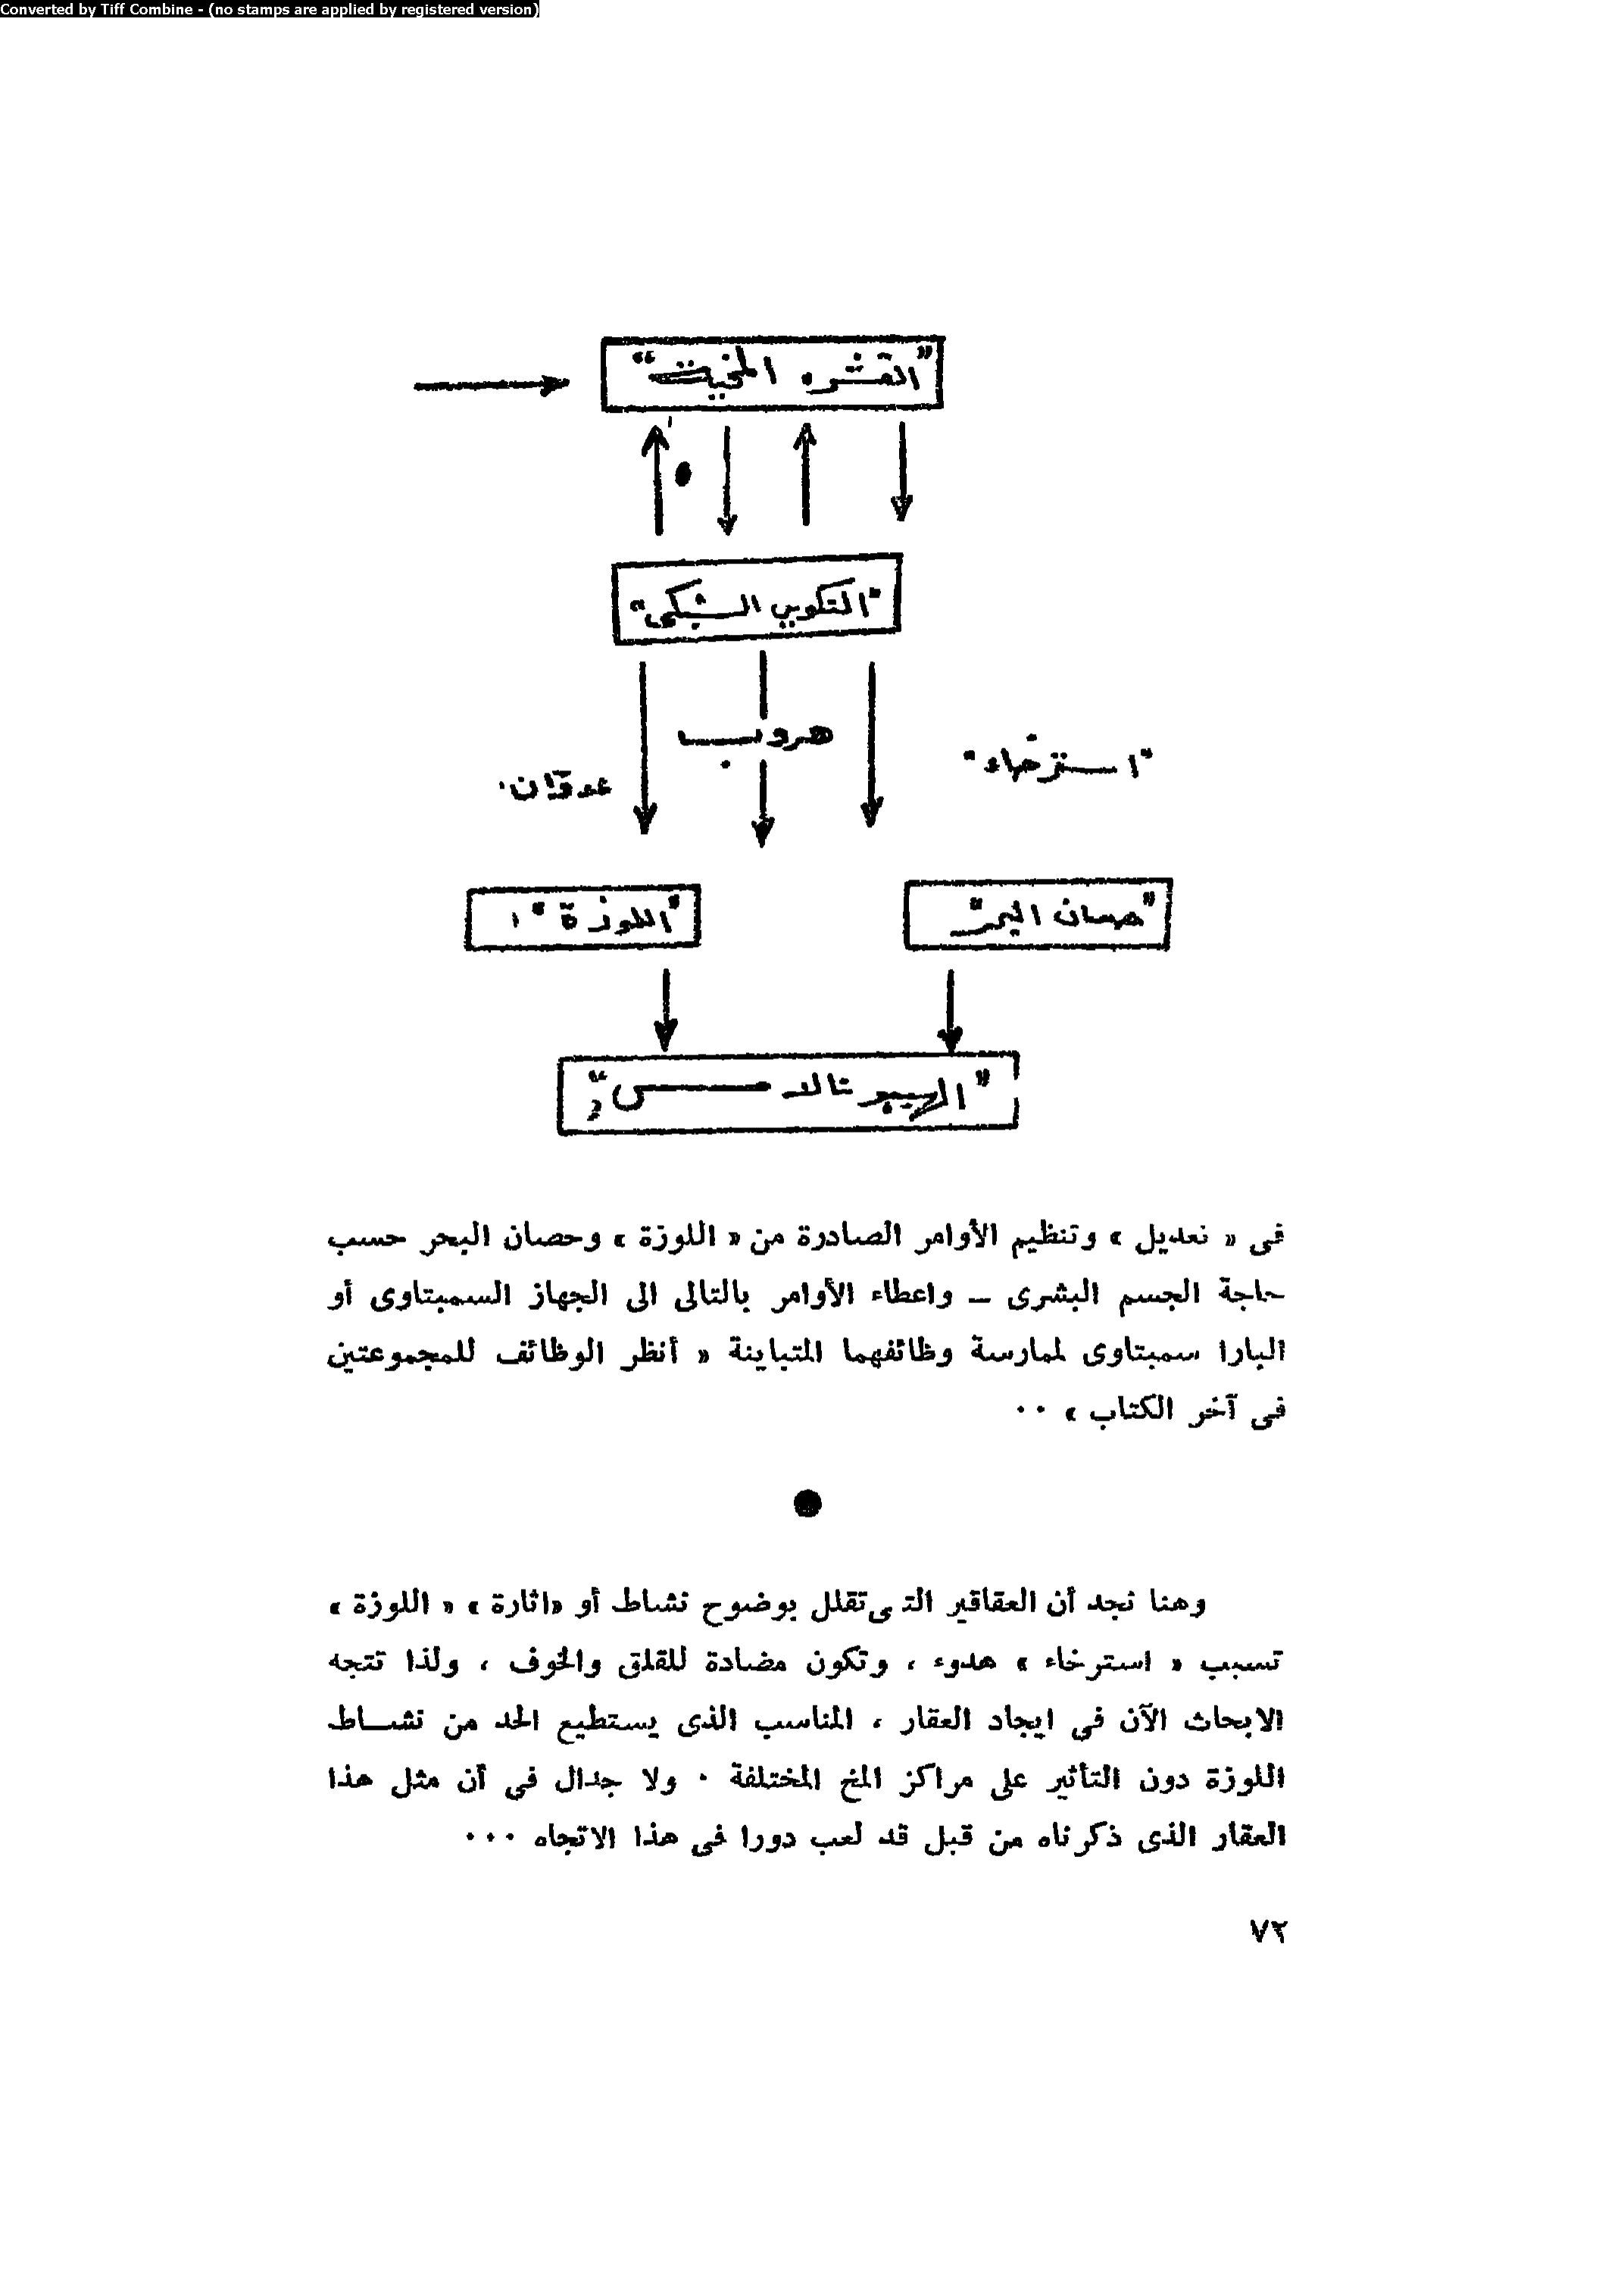 Converted by Tiff Combine - (no stamps are applied by registered version)
"القشره المخيت"
"التكوين الشبكى"
هروب
"استرخاء"
عدوان
"اللوزة"
"حصان البحر"
"الهيبوتالامس"
فى « تعديل » وتنظيم الأوامر الصادرة من « اللوزة » وحصان البحر حسب
حاجة الجسم البشرى ــ واعطاء الأوامر بالتالى الى الجهاز السمبتاوى أو
البارا سمبتاوى لممارسة وظائفهما المتباينة « أنظر الوظائف للمجموعتين
فى آخر الكتاب » ٠٠
وهنا نجد أن العقاقير التى تقلل بوضوح نشاط أو «اثارة » « اللوزة »
تسبب « استرخاء » هدوء ، وتكون مضادة للقلق والخوف ، ولذا تتجه
الابحاث الآن في ايجاد العقار ، المناسب الذى يستطيع الحد من نشــاط
اللوزة دون التأثير على مراكز المخ المختلفة ٠ ولا جدال فى أن مثل هذا
العقار الذى ذكرناه من قبل قد لعب دورا فى هذا الاتجاه ٠٠٠
٧٢